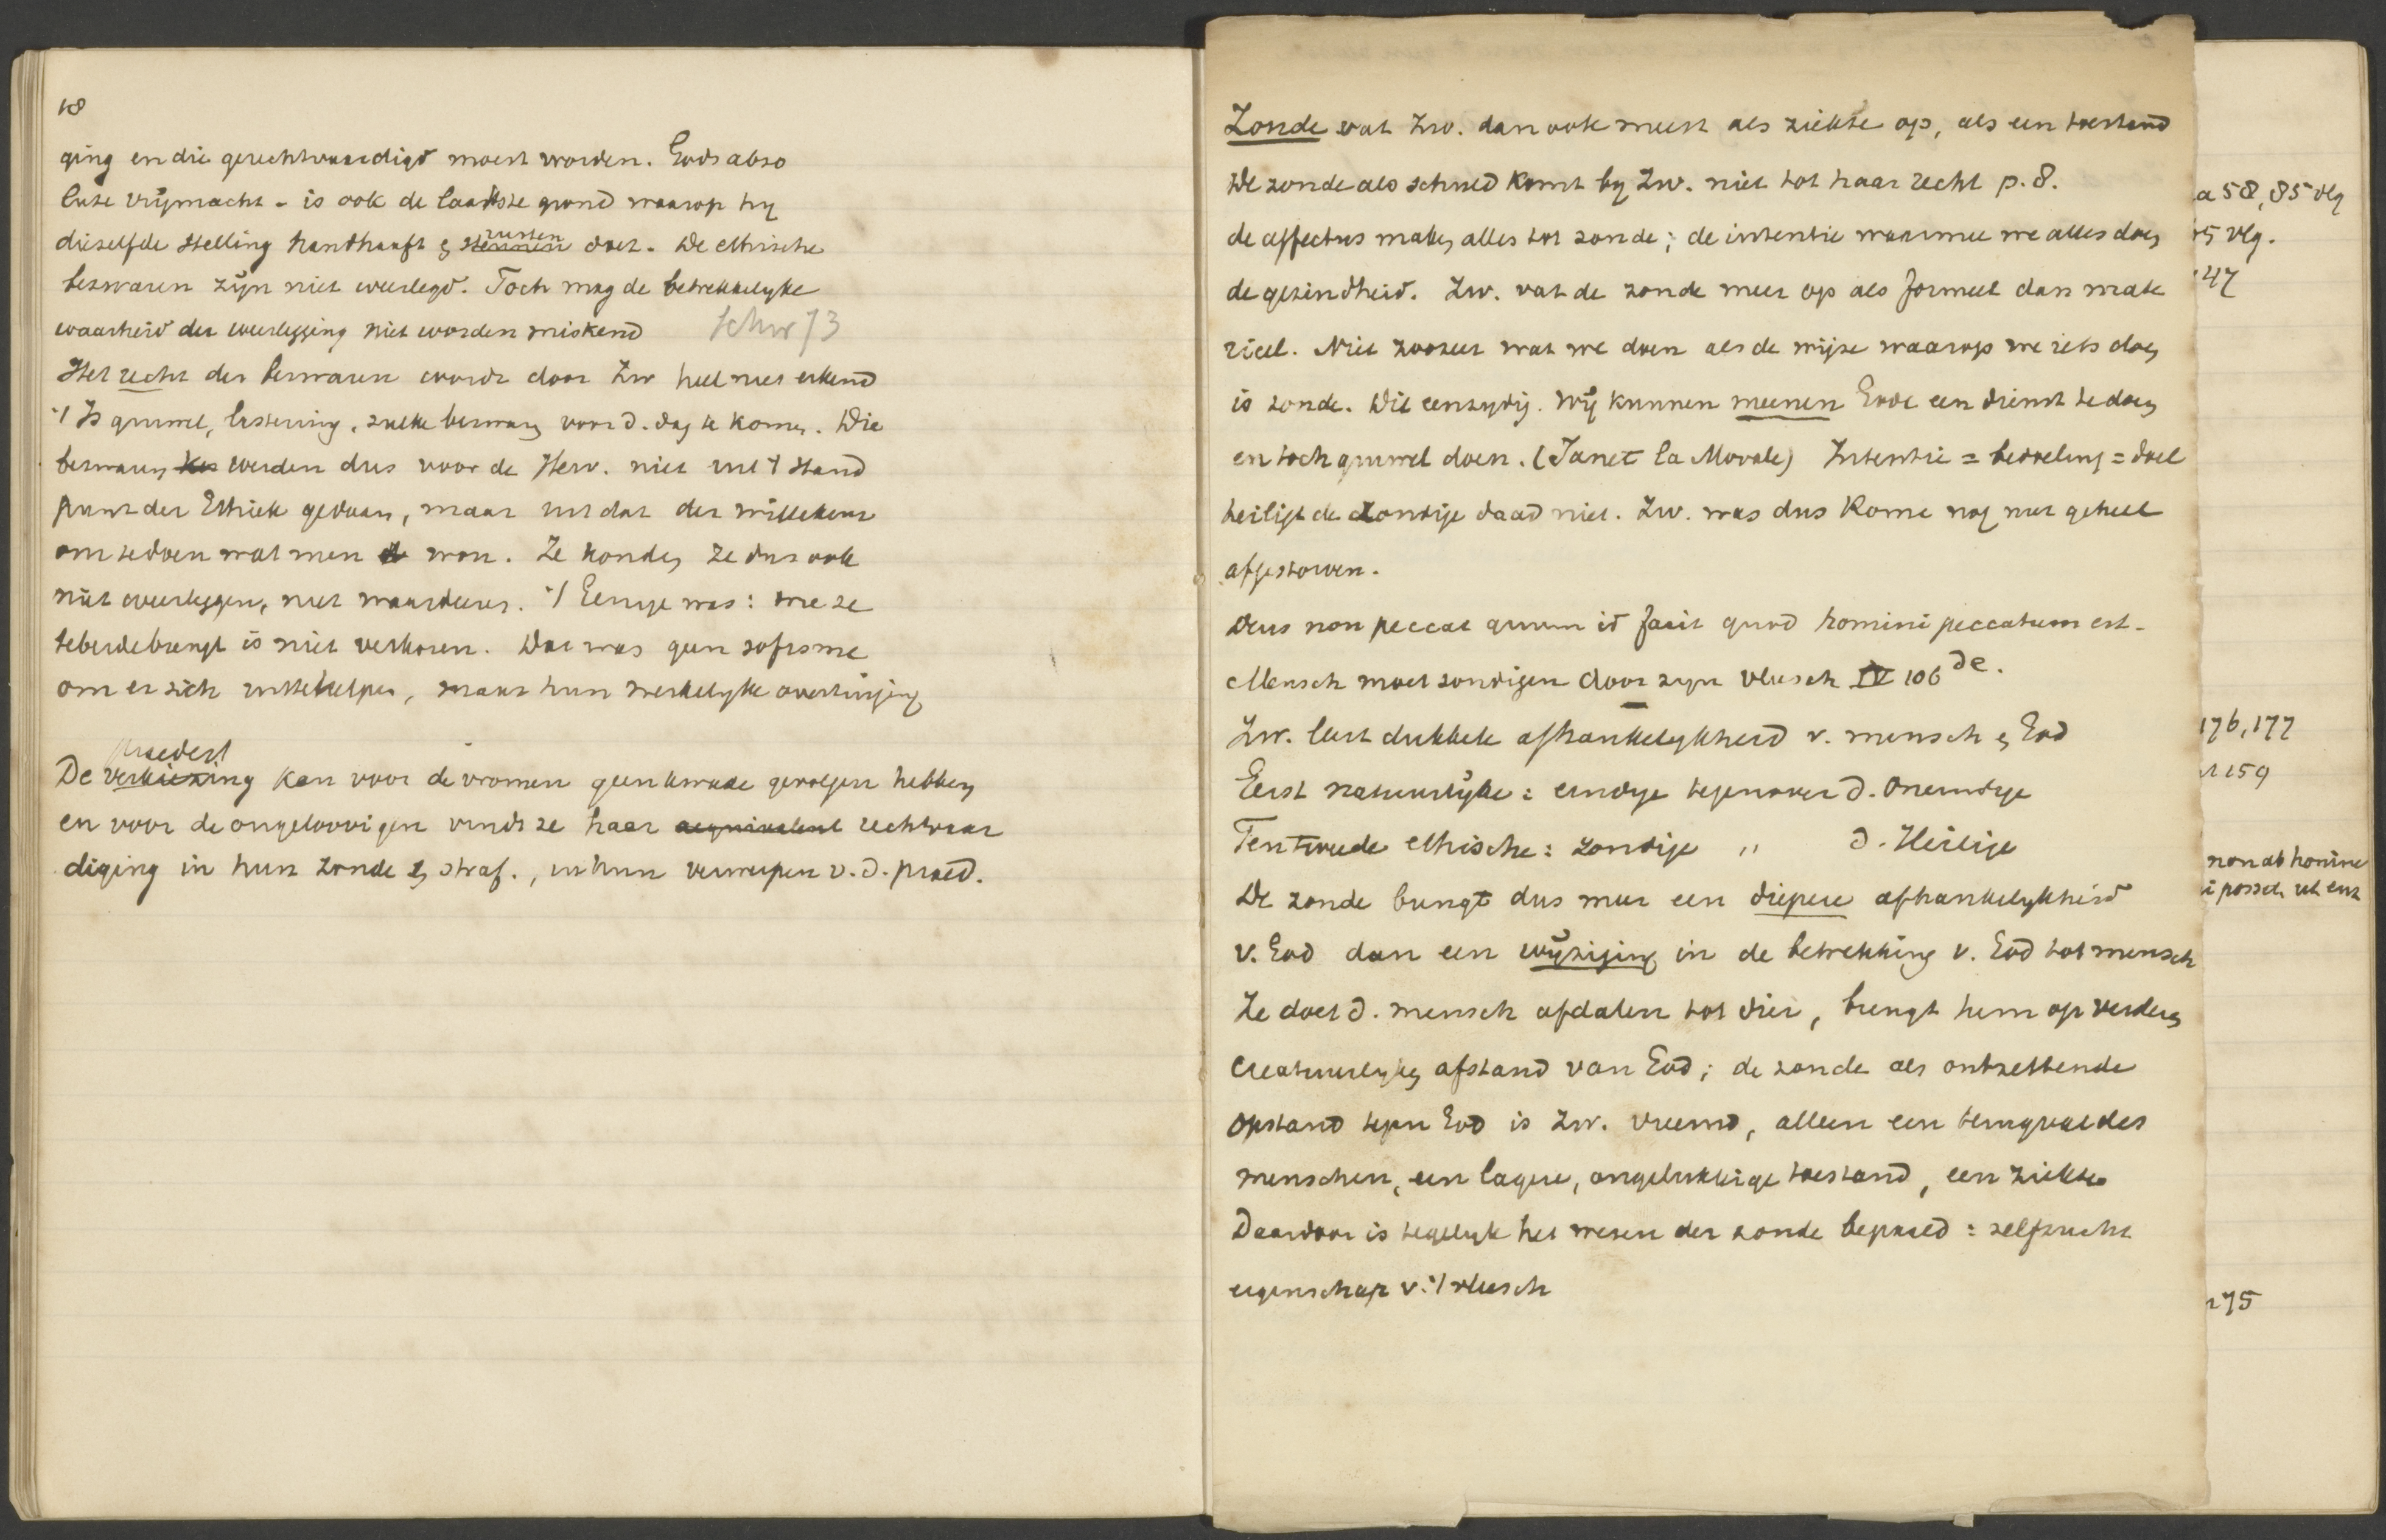 18
ging en die gerechtvaardigd moest worden. Gods abso
lute vrijmacht - is ook de laatste grond waarop hij
diezelfde stelling handhaaft & steunen rusten doet. De ethische
bezwaren zijn niet weerlegd. Toch mag de betrekkelijke
waarheid der weerlegging niet worden miskend Schw 73
Het recht der bezwaren wordt door Zw heel niet erkend
't Is gruwel, lastering, zulke bezwaren voor d. dag te komen. Die
bezwaren werden dus voor de Herv. niet uit 't stand
punt der Ethiek gedaan, maar uit dat der willekeur
om te doen wat men wou. Ze konden ze dus ook
niet overleggen, niet waardeeren. 't Eenige was: wie ze
teberdebrengt is niet verkoren. Dat was geen sofisme
om er zich uit te helpen, maar hun werkelijke overtuiging
Praedest
De verkiezing kan voor de vromen geen kwade gevolgen hebben
en voor de ongeloovigen vindt ze haar aequivalent rechtvaar
diging in hun zonde & straf., in hun verwerpen v. d. praed.
Zonde vat Zw. dan ook meest als ziekte op, als een toestand
De zonde als schuld komt bij Zw. niet tot haar recht p. 8.
de affectus maken alles tot zonde; de intentie waarmee we alles doen
de gezindheid. Zw. vat de zonde meer op als formeel dan mate
rieel. Niet zoozeer wat we doen als de wijze waarop we iets doen
is zonde. Dit eenzijdig. Wij kunnen meenen Gode een dienst te doen
en toch gruwel doen. (Janet la Morale) Intentie = bedoeling = doel
heiligt de zondige daad niet. Zw. was dus Rome nog niet geheel
afgestorven.
Deus non peccat quum id facit quod homini peccatum est.
Mensch moet zondigen door zijn vleesch IV 106 de.
Zw. leert dubbele afhankelijkheid v. mensch & God
Eerst natuurlijke: eindige tegenover d. oneindige
Ten tweede ethische: zondige " d. Heilige
De zonde brengt dus meer een diepere afhankelijkheid
v. God dan een wijziging in de betrekking v. God tot mensch
Ze doet d. mensch afdalen tot dier, brengt hem op verderen
creatuurlijken afstand van God; de zonde als ontzettende
opstand tegen God is Zw. vreemd, alleen een terugval des
menschen, een lagere, ongelukkige toestand, een ziekte
Daardoor is tegelijk het wezen der zonde bepaald: zelfzucht
eigenschap v. 't vleesch
a 58, 85 vlg
5 vlg.
47
176, 177
159
non ab homine
posset ut
75